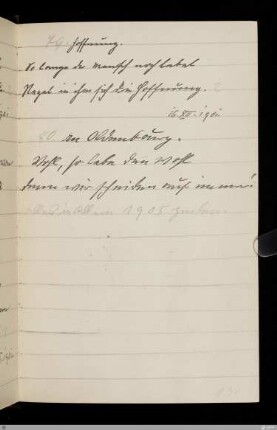 79. Hoffnung.
So lange der Mensch noch lebet
Regt in ihm sich die Hoffnung.
16 XI. 1901
80. an Oldenburg.
Wohl, so lebe den wohl
denn wir scheiden auf immer!
1905